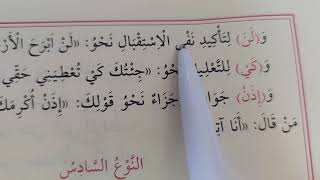 وَ(لَنْ) لِتَأْكِيدِ نَفْيِ الْاِسْتِقْبَالِ نَحْوُ: «لَنْ اَبْرَحَ
وَ(كَيْ) لِلتَّعْلِيلِ نَحْوُ: «جِئْتُكَ كَيْ تُعْطِيَنِي حَقِّي
وَ(إِذَنْ) جَزَاءٌ نَحْوُ قَوْلِكَ: «إِذَنْ أُكْرِمَكَ
مَنْ قَالَ: «أَنَا
النَّوْعُ السَّادِسُ